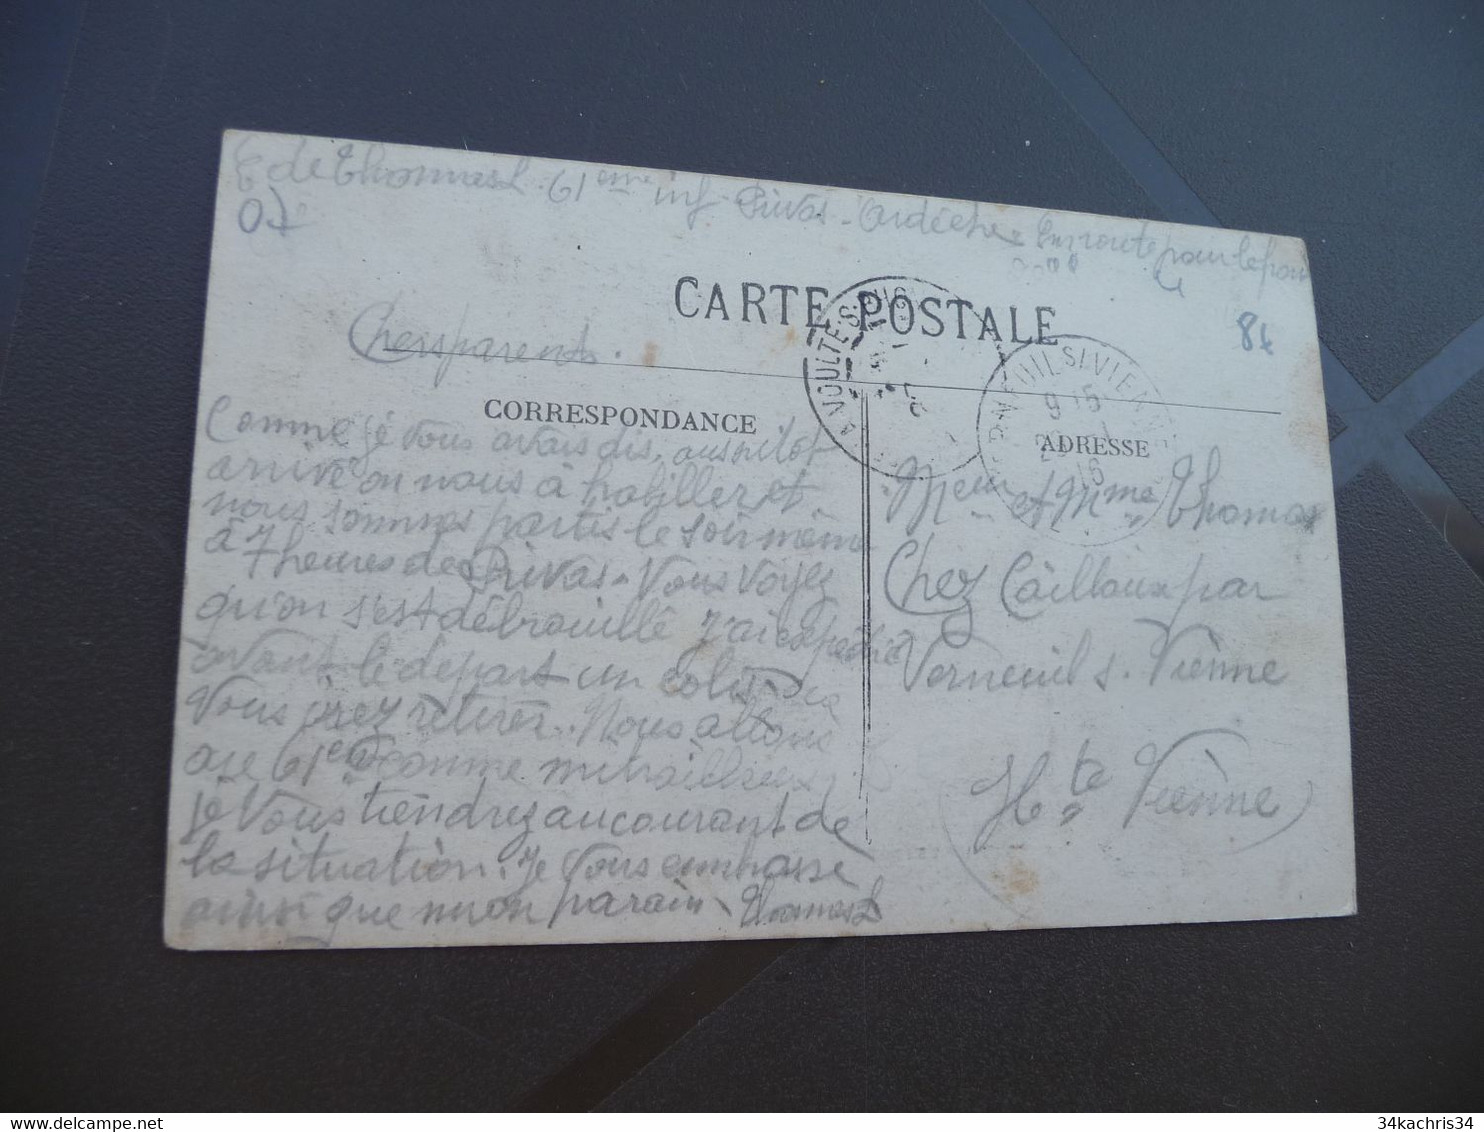 E de Thomas L. 61eme inf Privas - Ardèche En route pour le fron
07
CARTE POSTALE
84
Chers parents.
CORRESPONDANCE
ADRESSE
LA VOULTE S. RHÔNE
VERNEUIL S. VIENNE
9 15
16
Comme je vous avais dis, aussitot
arrivé on nous à habiller et
nous sommes partis le soir même
à 7 heures de Privas. Vous voyez
qu'on s'est débrouillé J'ai expédié
avant le départ un colis
vous irez retirer. Nous allons
au 61e comme mitrailleurs
je vous tiendrez au courant de
la situation. Je vous embrasse
ainsi que mon parain Thomas L
Meur et Mme Thomas
Chez Cailloux par
Verneuil s. Vienne
Hte Vienne
34kachris34